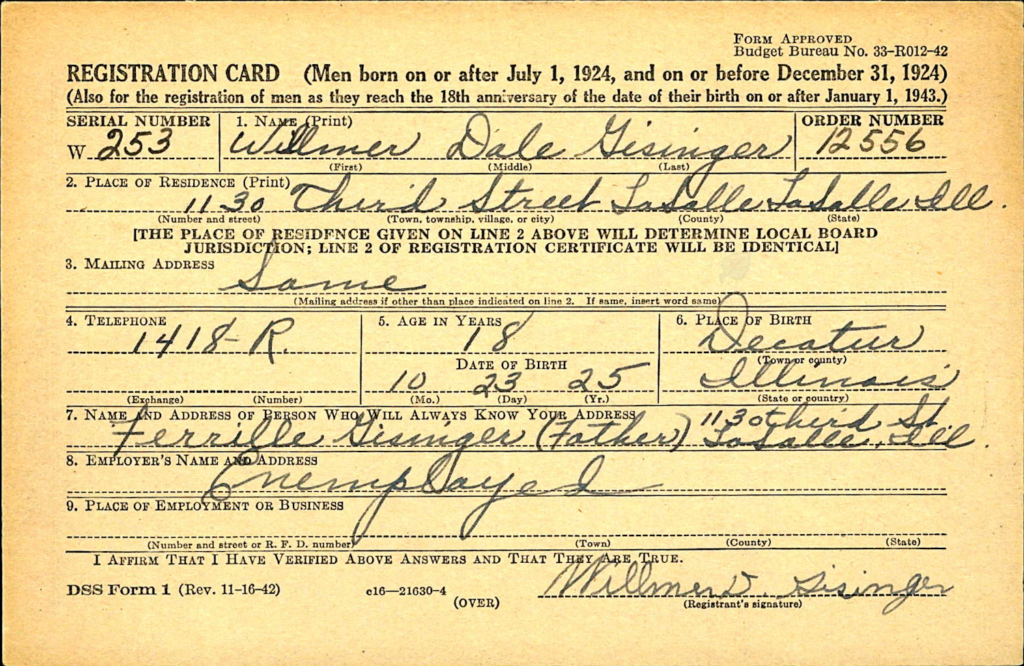 FORM APPROVED
Budget Bureau No. 33-R012-42
REGISTRATION CARD (Men born on or after July 1, 1924, and on or before December 31, 1924)
(Also for the registration of men as they reach the 18th anniversary of the date of their birth on or after January 1, 1943.)
SERIAL NUMBER 1. NAME (Print) ORDER NUMBER
W 253 Willmer Dale Gisinger 12556
(First) (Middle) (Last)
2. PLACE OF RESIDENCE (Print)
1130 Third Street LaSalle LaSalle Ill.
(Number and street) (Town, township, village, or city) (County) (State)
[THE PLACE OF RESIDENCE GIVEN ON LINE 2 ABOVE WILL DETERMINE LOCAL BOARD
JURISDICTION; LINE 2 OF REGISTRATION CERTIFICATE WILL BE IDENTICAL]
3. MAILING ADDRESS
Same
(Mailing address if other than place indicated on line 2. If same, insert word same)
4. TELEPHONE 5. AGE IN YEARS 6. PLACE OF BIRTH
1418-R. 18 Decatur
DATE OF BIRTH (Town or county)
10 23 25 Illinois
(Exchange) (Number) (Mo.) (Day) (Yr.) (State or country)
7. NAME AND ADDRESS OF PERSON WHO WILL ALWAYS KNOW YOUR ADDRESS 1130 third St
Ferrille Gisinger (Father) LaSalle, Ill.
8. EMPLOYER'S NAME AND ADDRESS
Unemployed
9. PLACE OF EMPLOYMENT OR BUSINESS
(Number and street or R. F. D. number) (Town) (County) (State)
I AFFIRM THAT I HAVE VERIFIED ABOVE ANSWERS AND THAT THEY ARE TRUE.
DSS Form 1 (Rev. 11-16-42) c16—21630-4 Willmer D. Gisinger
(OVER) (Registrant's signature)